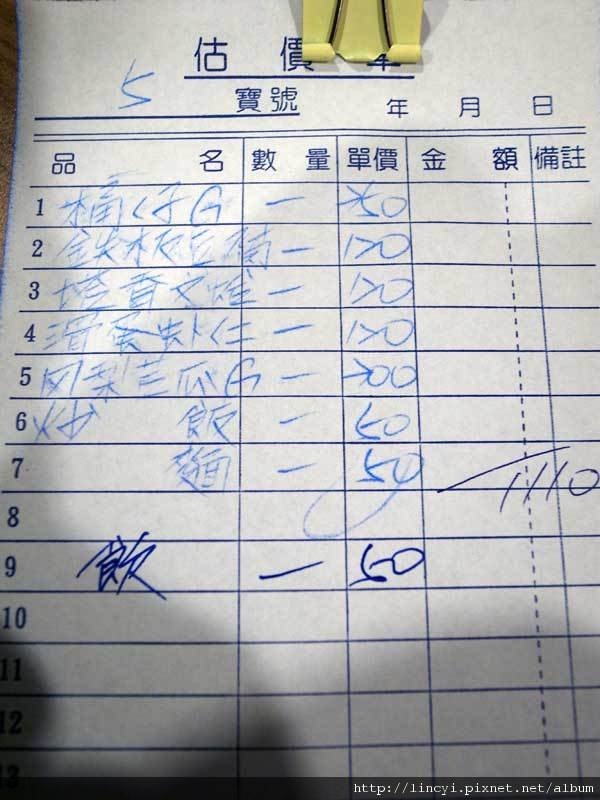 估價單
5 寶號 年 月 日
品 名 數 量 單價 金 額 備註
1 桶仔G 一 350
2 鉄板豆腐 一 120
3 塔香文蛤 一 120
4 滑蛋虾仁 一 120
5 凤梨苦瓜G 一 300
6 炒 飯 一 50
7 麵 一 50 1110
8
9 飲 一 50
10
11
12
13
http://lincyi.pixnet.net/album